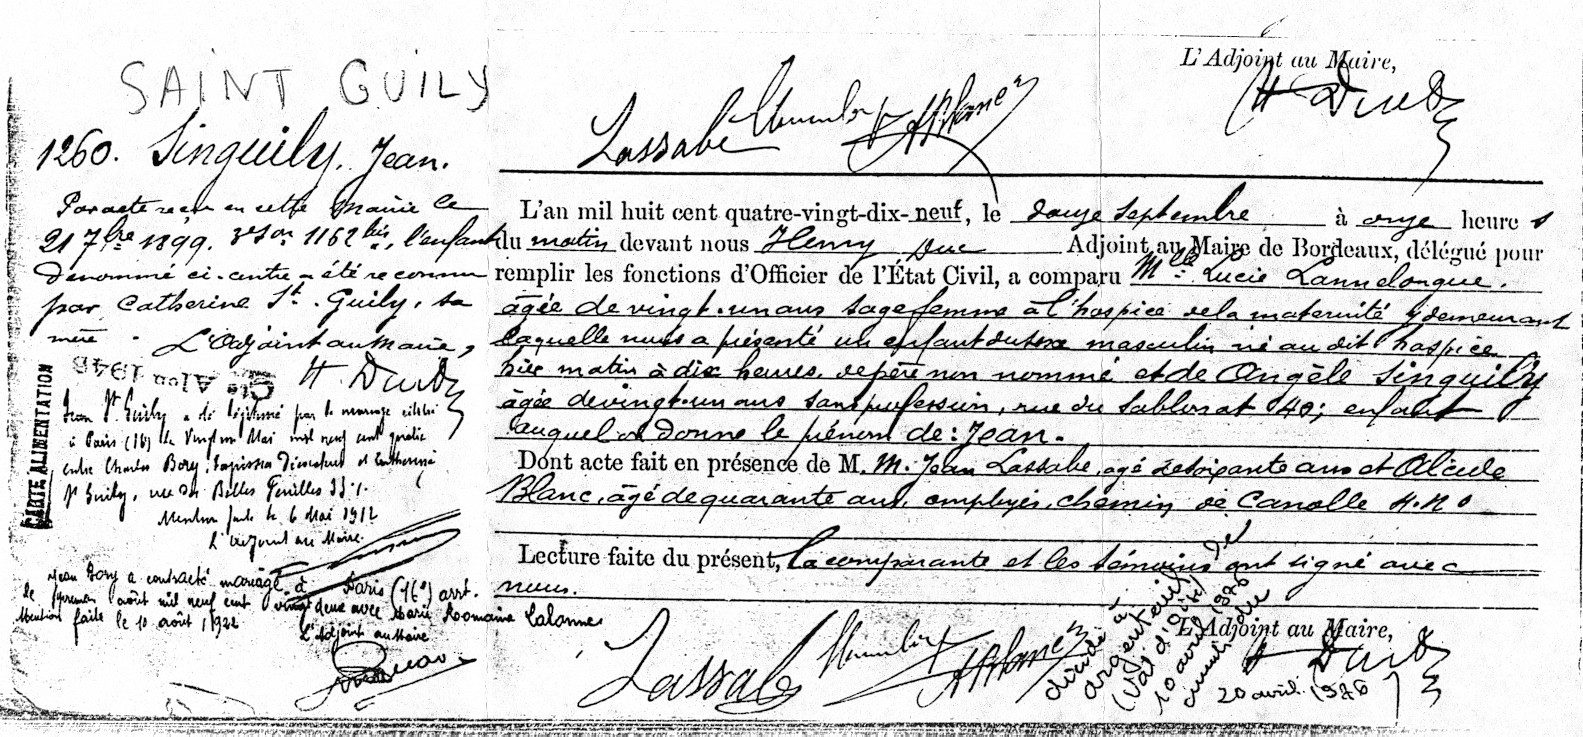 SAINT GUILY
1260. Singuily, Jean.
Par acte reçu en cette Mairie le
21 7bre 1899, son 1162 bis, l'enfant
dénommé ci-contre a été reconnu
par Catherine St. Guily, sa
mère.
L'Adjoint au Maire,
H. Duc
CARTE ALIMENTATION
1946
Jean St Guily a été légitimé par le mariage célébré
à Paris (16) le vingt un Mai mil neuf cent
entre Charles Bory, Tapissier Décorateur et Catherine
St Guily, rue des Belles Feuilles 33.
Mention faite le 6 Mai 1912
L'Adjoint au Maire.
Jean Bory a contracté mariage à Paris (16e) arrt.
le premier août mil neuf cent vingt deux avec Marie Romaine Calonnes
Mention faite le 10 août 1922
L'Adjoint au Maire
L'Adjoint au Maire,
H. Duc
Lassabe A. Blanc
L'an mil huit cent quatre-vingt-dix-neuf, le douze Septembre à onze heures
du matin devant nous Henry Duc Adjoint au Maire de Bordeaux, délégué pour
remplir les fonctions d'Officier de l'État Civil, a comparu Mlle Lucie Lannelongue,
âgée de vingt-un ans sage femme à l'hospice de la maternité y demeurant
laquelle nous a présenté un enfant du sexe masculin né au dit hospice
hier matin à dix heures, de père non nommé et de Angèle Singuily
âgée de vingt-un ans sans profession, rue du Sablonat 40; enfant
auquel on donne le prénom de: Jean.
Dont acte fait en présence de M. M. Jean Lassabe, agé de soixante ans et Alcide
Blanc, âgé de quarante ans, employés, chemin de Canolle H. N°
Lecture faite du présent, la comparante et les témoins ont signé avec
nous.
L'Adjoint au Maire,
Lassabe A. Blanc H. Duc
décédé à
Argenteuil
(Val d'Oise) le
10 avril 1976
20 avril 1976